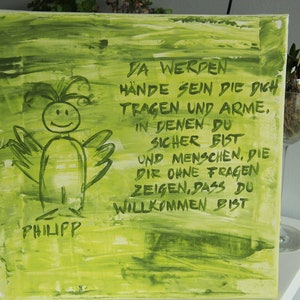 DA WERDEN
HÄNDE SEIN DIE DICH
TRAGEN UND ARME,
IN DENEN DU
SICHER BIST
UND MENSCHEN, DIE
DIR OHNE FRAGEN
ZEIGEN, DASS DU
WILLKOMMEN BIST
PHILIPP